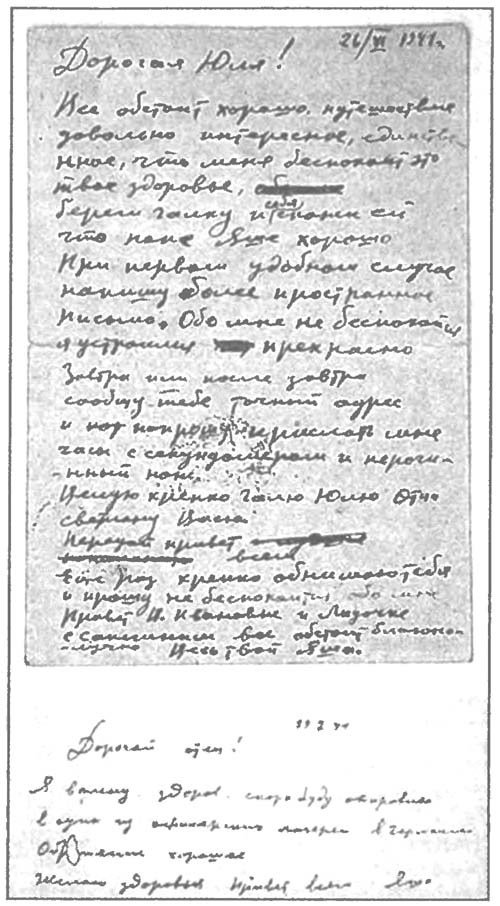 26/VI 1941 г.
Дорогая Юля!
Все обстоит хорошо. путешествие
довольно интересное, единстве-
нное, что меня беспокоит это
твое здоровье,
береги Галку и себя скажи ей
что папе Яше хорошо
При первом удобном случае
напишу более пространное
письмо. Обо мне не беспокойся
я устроился прекрасно
Завтра или после завтра
сообщу тебе точный адрес
и попрошу прислать мне
часы с секундомером и перочи-
-нный нож.
Целую крепко Галю Юлю Отца
Светлану Васю.
Передай привет
всем
Еще раз крепко обнимаю тебя
и прошу не беспокоится обо мне
Привет В. Ивановне и Лидочке
с Сапегиным все обстоит благопо-
-лучно Весь твой Яша.
19 7 41
Дорогой отец!
Я в плену здоров. скоро буду отправлен
в один из офицерских лагерей в Германию
Обращение хорошее
Желаю здоровья Привет всем Яша